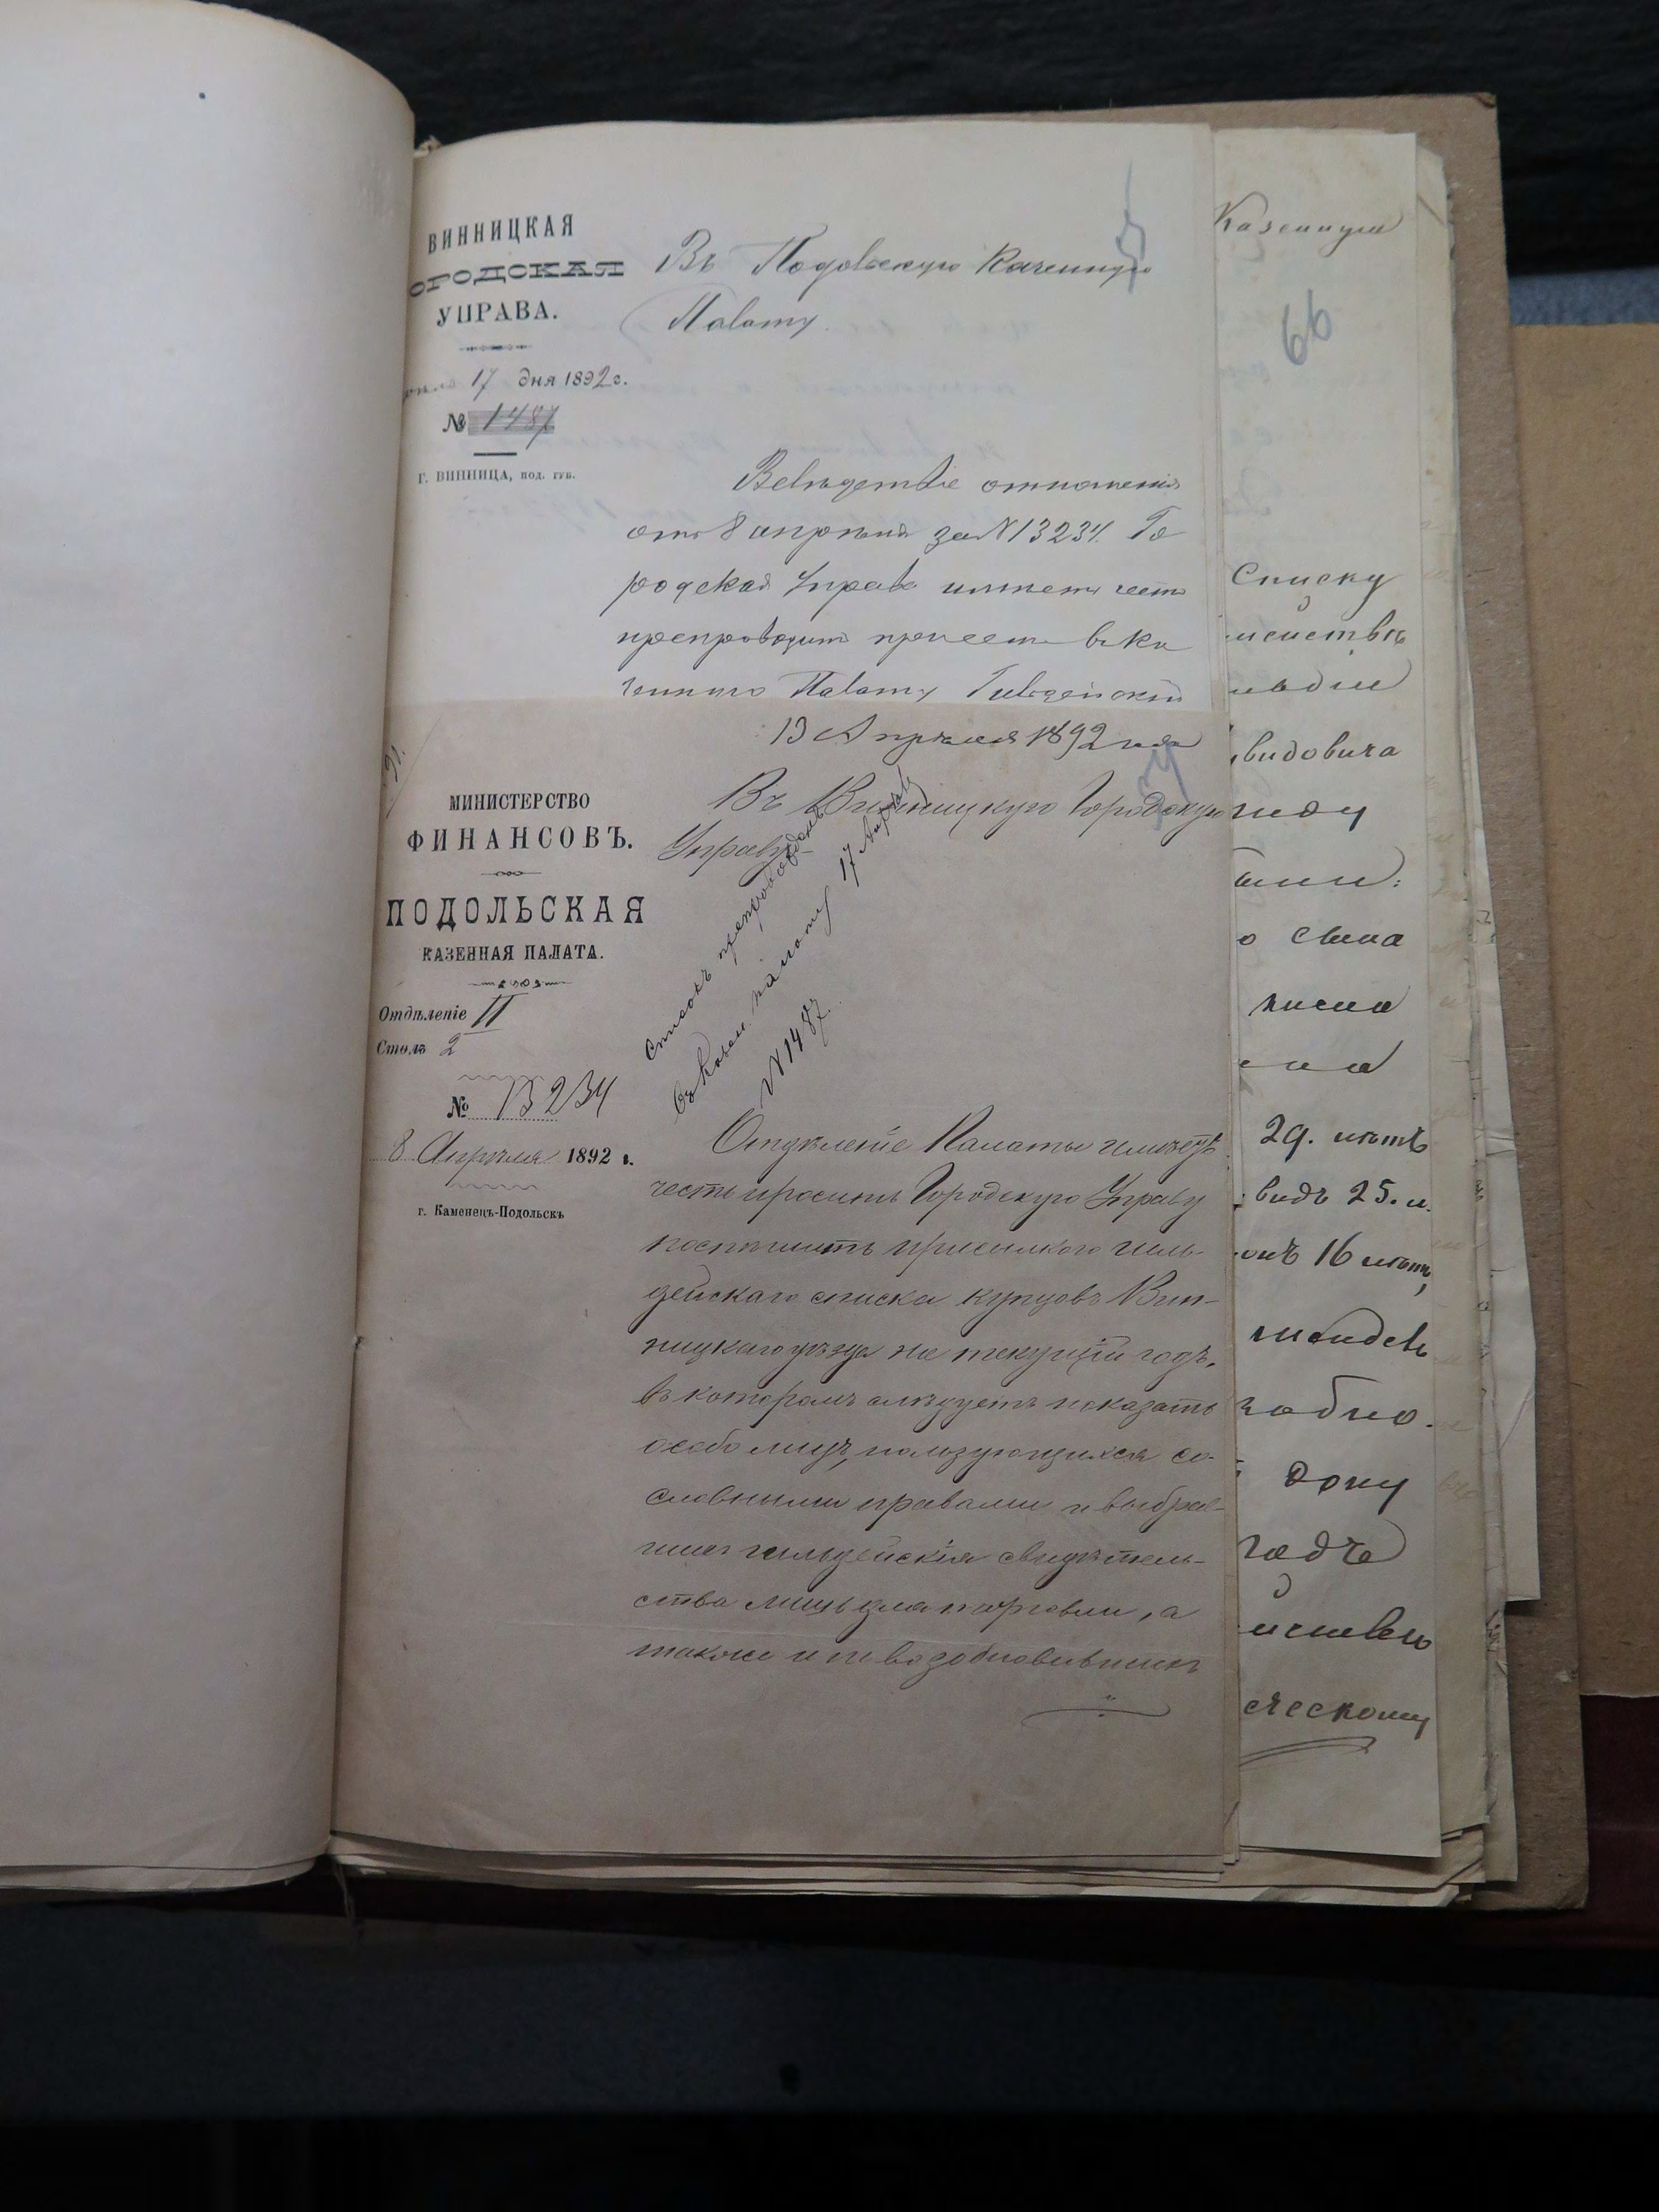 ВИННИЦКАЯ
ОРОДСКАЯ
УПРАВА.
17 дня 1892 г.
№ 1487
Г. ВИННИЦА, под. губ.
Въ Подольскую Казенную
Палату.
Вслѣдствіе отношенія
отъ 8 апрѣля за N 13234. Го
родская Управа имѣетъ честь
препроводить при семъ въ Ка
зенную Палату Гильдейскій
13 Апрѣля 1892 года
МИНИСТЕРСТВО
ФИНАНСОВЪ.
ПОДОЛЬСКАЯ
КАЗЕННАЯ ПАЛАТА.
Отдѣленіе II
Столъ 2
№ 13234
8 Апрѣля 1892 г.
г. Каменецъ-Подольскъ
Въ Винницкую Городскую
Управу
Списокъ препровожденъ
въ Казен. палату 17 Апрѣля
N 1487.
Отдѣленіе Палаты имѣетъ
честь просить Городскую Управу
поспѣшить присылкою гиль-
дейскаго списка купцовъ Вин-
ницкаго уѣзда на текущій годъ,
въ которомъ слѣдуетъ показать
особо лицъ, пользующихся со-
словными правами и выбрав-
шихъ гильдейскія свидѣтель-
ства лишь для торговли, а
также и не возобновившихъ
Казенную
66
Списку
видовича
о сына
29. лѣтъ
видъ 25. л.
16 лѣтъ,
дону
годъ
ческому